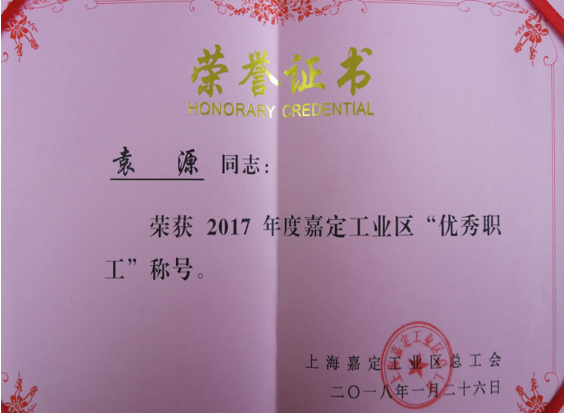 荣誉证书
HONORARY CREDENTIAL
袁 源 同志：
荣获 2017 年度嘉定工业区“优秀职
工”称号。
上海嘉定工业区总工会
二〇一八年一月二十六日